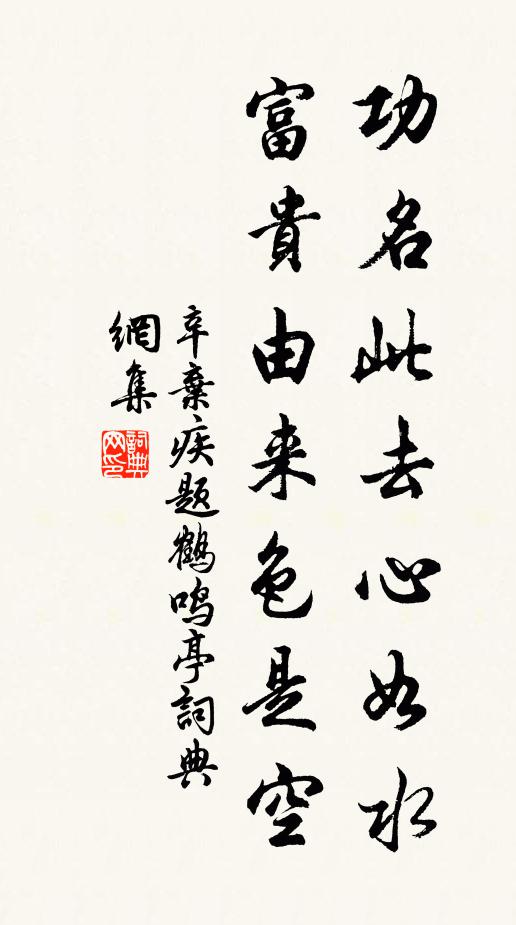 功名此去心如水
富貴由来色是空
辛棄疾题鶴鸣亭詞典
網集
詞典網印